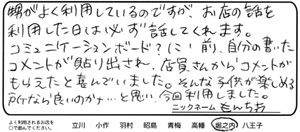 甥がよく利用しているのですが、お店の話を
利用した日は必ず話してくれます。
コミュニケーションボード?(に)前、自分の書いた
コメントが貼り出され、店員さんからコメントが
もらえたと喜んでいました。そんな子供が楽しめる
所なら良いのかナ…と思い今回利用しました。
ニックネーム
よく利用されるお店を
○で囲んでください。
立川 小作 羽村 昭島 青梅 高幡 堀之内 八王子